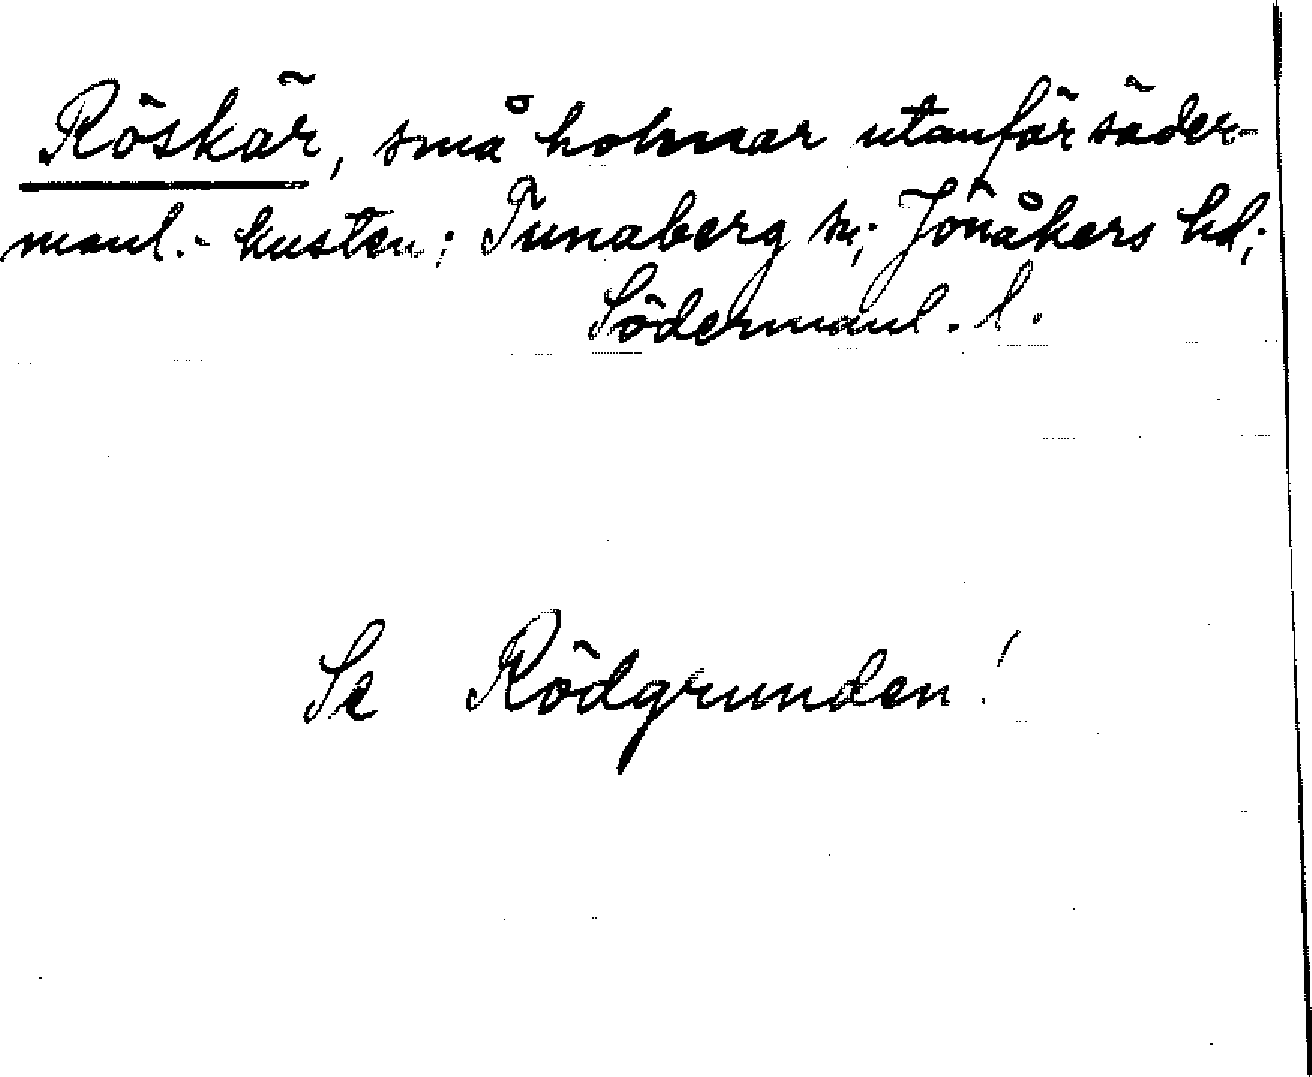 Röskär, små holmar utanför söder-
manl.-kusten; Tunaberg sn; Jönåkers hd;
Södermanl. l.
Se Rödgrunden!